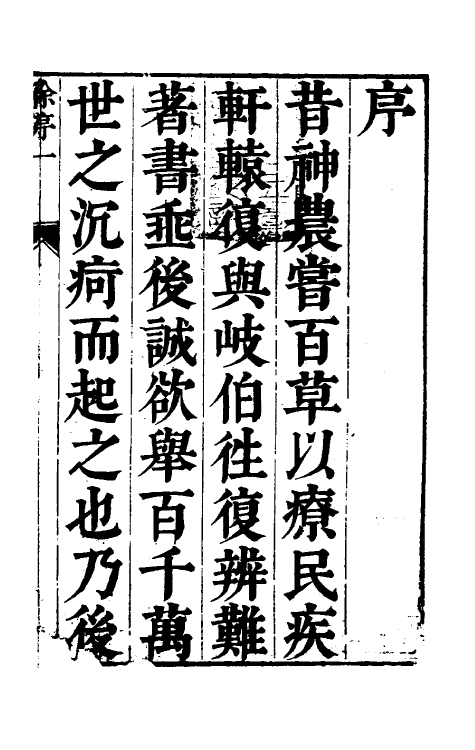 序
昔神農嘗百草以療民疾
軒轅復與岐伯徃復辨難
著書垂後誠欲舉百千萬
世之沉疴而起之也乃後
徐序一